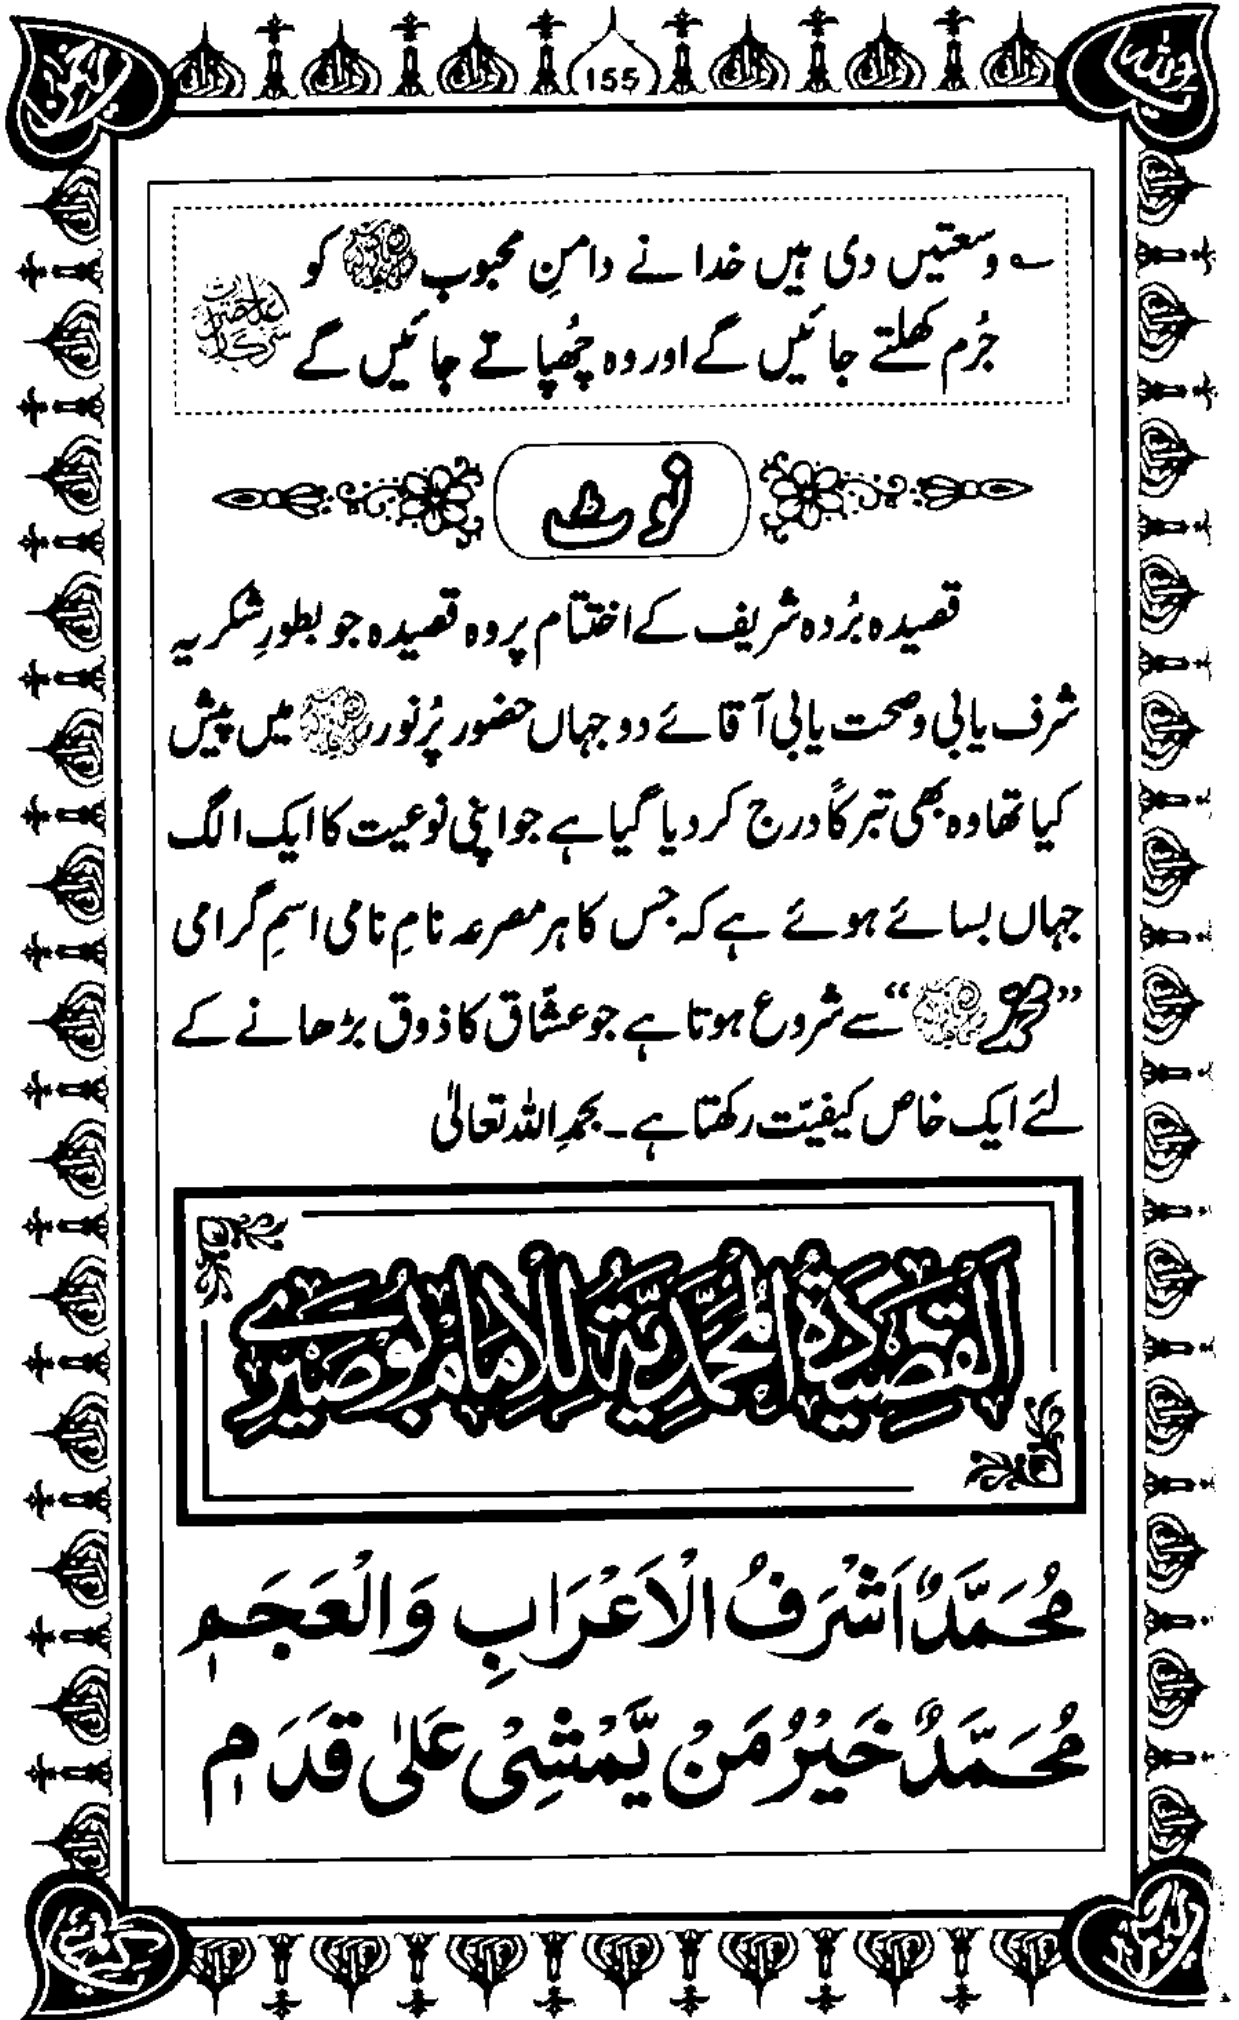 155
؎ وسعتیں دی ہیں خدا نے دامنِ محبوب ﷺ کو
جُرم کھلتے جائیں گے اور وہ چُھپاتے جائیں گے
نوٹ
قصیدہ بُردہ شریف کے اختتام پر وہ قصیدہ جو بطورِ شکریہ
شرف یابی و صحت یابی آقائے دو جہاں حضور پُرنور ﷺ میں پیش
کیا تھا وہ بھی تبرکاً درج کر دیا گیا ہے جو اپنی نوعیت کا ایک الگ
جہاں بسائے ہوئے ہے کہ جس کا ہر مصرعہ نامِ نامی اسمِ گرامی
”محمد ﷺ“ سے شروع ہوتا ہے جو عشّاق کا ذوق بڑھانے کے
لئے ایک خاص کیفیّت رکھتا ہے۔ بحمدِ اللہ تعالیٰ
اَلْقَصِيْدَةُ الْمُحَمَّدِيَّةُ لِلْاِمَامِ بُوْصِيْرِي
مُحَمَّدٌ اَشْرَفُ الْاَعْرَابِ وَالْعَجَمِ
مُحَمَّدٌ خَيْرُ مَنْ يَّمْشِىْ عَلٰى قَدَمِ